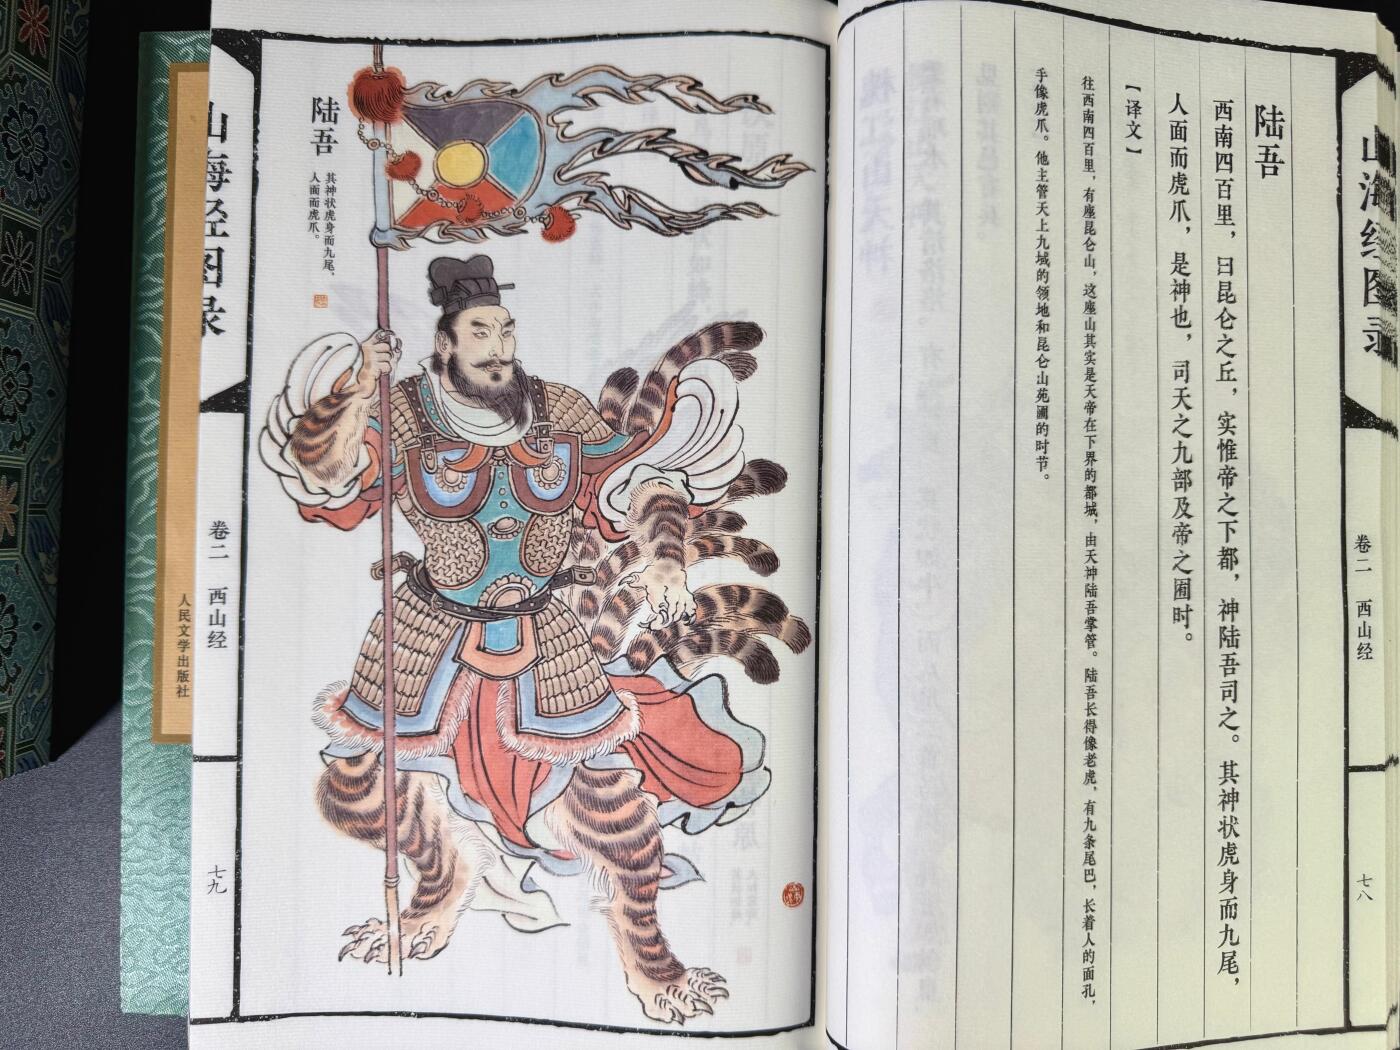 山海经图录
卷二 西山经
七八
陆吾
西南四百里，曰昆仑之丘，实惟帝之下都，神陆吾司之。其神状虎身而九尾，
人面而虎爪，是神也，司天之九部及帝之囿时。
【译文】
往西南四百里，有座昆仑山，这座山其实是天帝在下界的都城，由天神陆吾掌管。陆吾长得像老虎，有九条尾巴，长着人的面孔，
手像虎爪。他主管天上九域的领地和昆仑山苑圃的时节。
陆吾
其神状虎身而九尾，
人面而虎爪。
山海经图录
卷二 西山经
七九
人民文学出版社